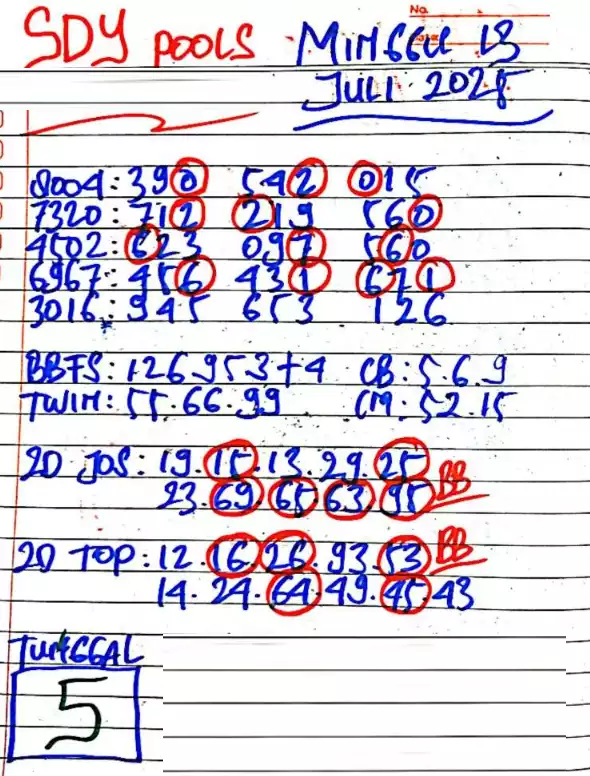 No.
SDY POOLS MINGGU 13
JULI 2025
8004: 390 542 015
7320: 712 219 560
4502: 623 097 560
6967: 456 431 671
3016: 945 653 126
BBFS: 126953+4 CB: 5.6.9
TWIN: 55.66.99 CM: 52.15
2D JOS: 19.15.13.29.25
23.69.65.63.95 BB
2D TOP: 12.16.26.93.53 BB
14.24.64.49.45 43
TUNGGAL
5